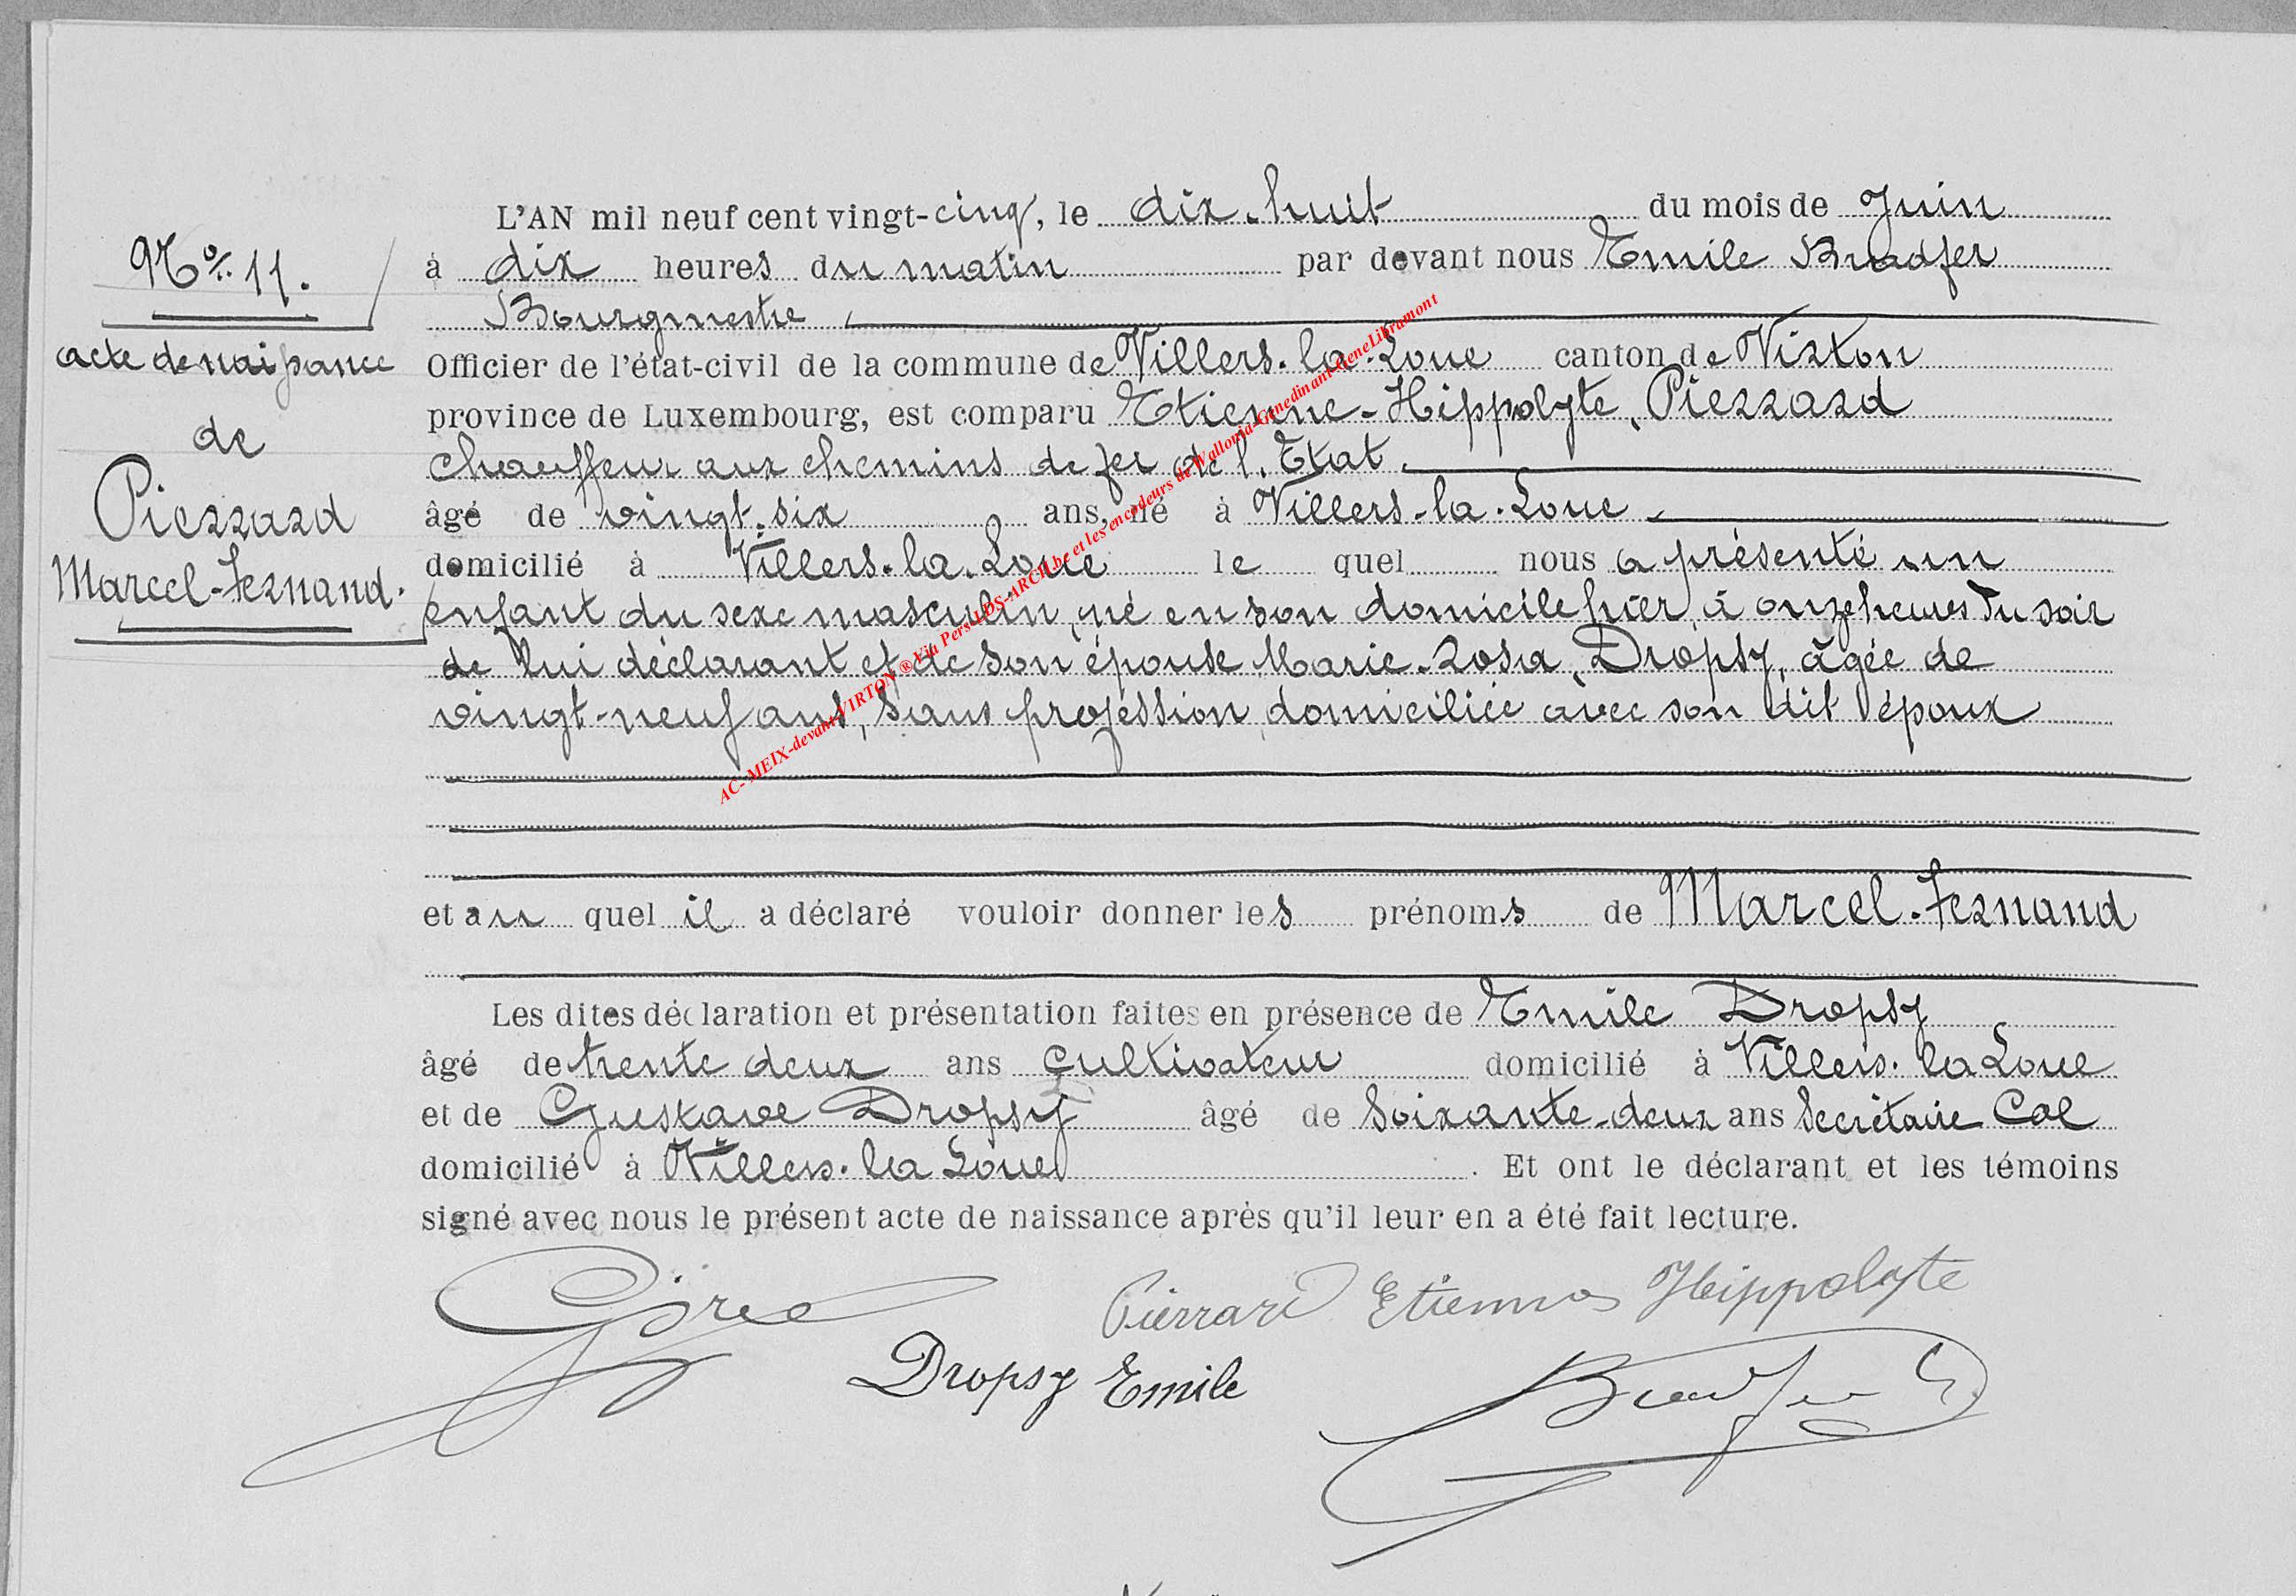 L'AN mil neuf cent vingt-cinq, le dix-huit du mois de Juin
No. 11.
à dix heures du matin par devant nous Emile Bradfer
Bourgmestre
acte de naissance
Officier de l'état-civil de la commune de Villers-la-Loue canton de Virton
province de Luxembourg, est comparu Etienne-Hippolyte, Pierrard
de
chauffeur aux chemins de fer de l'Etat.
Pierrard
âgé de vingt-six ans, né à Villers-la-Loue
Marcel-Fernand.
domicilié à Villers-la-Loue le quel nous a présenté un
enfant du sexe masculin, né en son domicile hier, à onze heures du soir
de lui déclarant et de son épouse Marie-Rosa, Dropsy, âgée de
vingt-neuf ans, sans profession, domiciliée avec son dit époux
AC-MEIX-devant-VIRTON ® Via Pers LDS-ARCH.be et les encodeurs de Wallonia-Genedinant-GeneLibramont
et au quel il a déclaré vouloir donner les prénoms de Marcel-Fernand
Les dites déclaration et présentation faites en présence de Emile Dropsy
âgé de trente deux ans cultivateur domicilié à Villers-la Loue
et de Gustave Dropsy âgé de soixante-deux ans Secrétaire Cal
domicilié à Villers-la Loue. Et ont le déclarant et les témoins
signé avec nous le présent acte de naissance après qu'il leur en a été fait lecture.
Pierrard Etienne Hippolyte
Dropsy Emile
Bradfer E